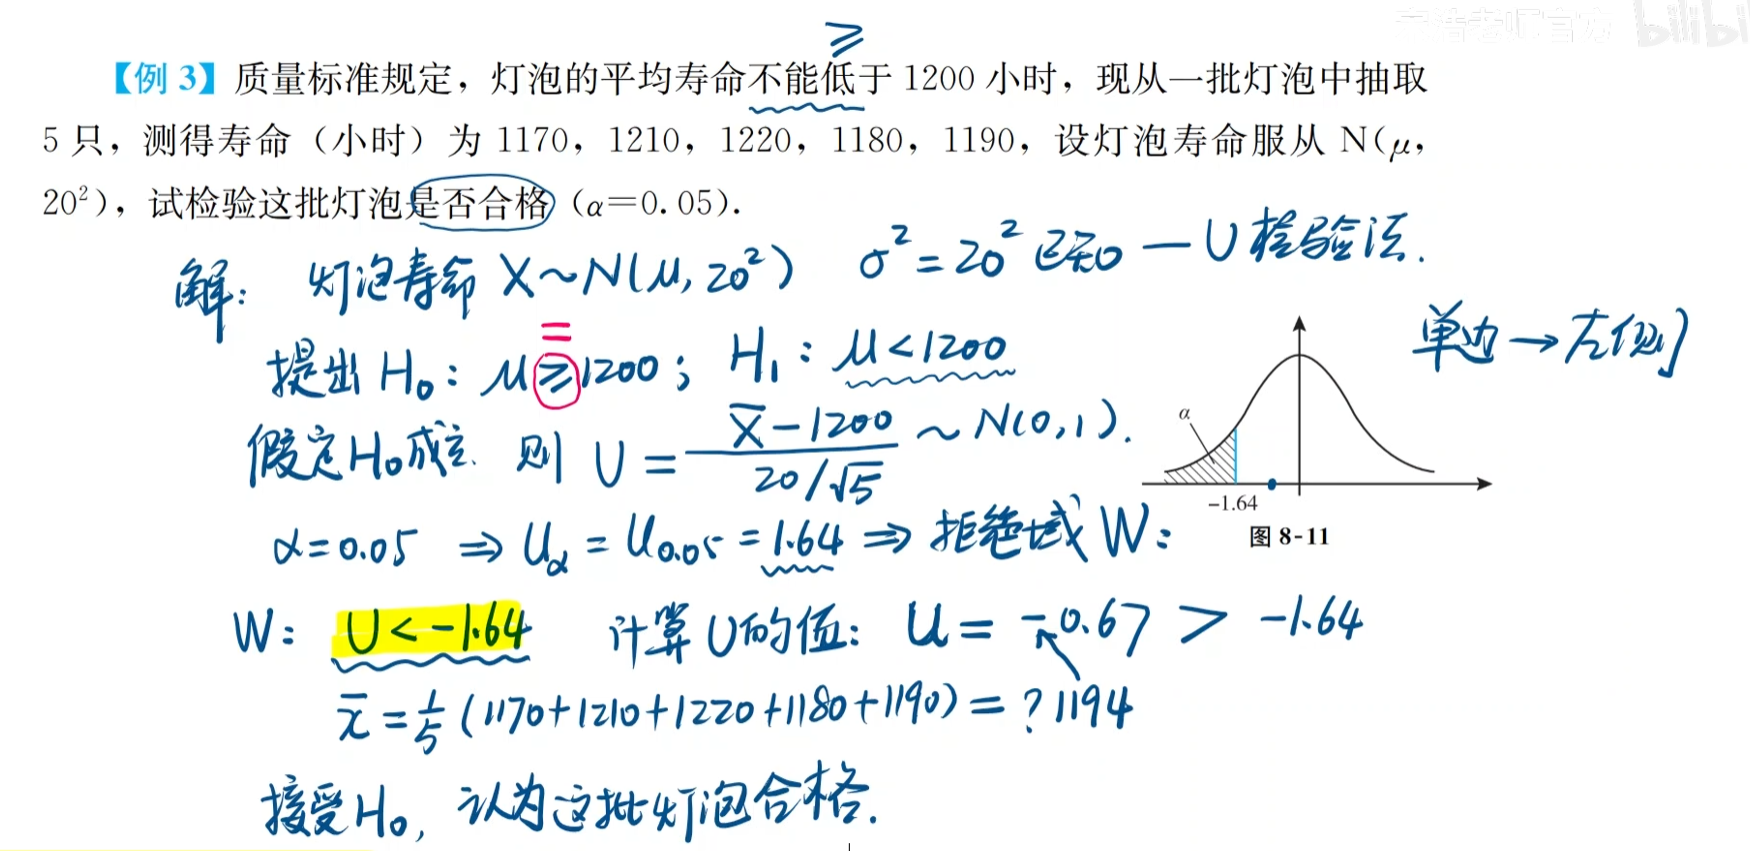 ≥
bilibi
【例 3】质量标准规定，灯泡的平均寿命不能低于 1200 小时，现从一批灯泡中抽取
5 只，测得寿命（小时）为 1170，1210，1220，1180，1190，设灯泡寿命服从 N(μ，
20²)，试检验这批灯泡是否合格（α=0.05）.
解: 灯泡寿命 X~N(μ, 20²) σ²=20² 已知 — U检验法.
=
提出 H₀: μ≥1200; H₁: μ<1200
单边→左侧
假定H₀成立. 则 U = (X̄-1200)/(20/√5) ~ N(0,1).
α
-1.64
图 8-11
α=0.05 ⇒ Uα = U0.05 = 1.64 ⇒ 拒绝域 W:
W: U<-1.64 计算U的值: U = -0.67 > -1.64
x̄ = 1/5 (1170+1210+1220+1180+1190) = ? 1194
接受H₀, 认为这批灯泡合格.